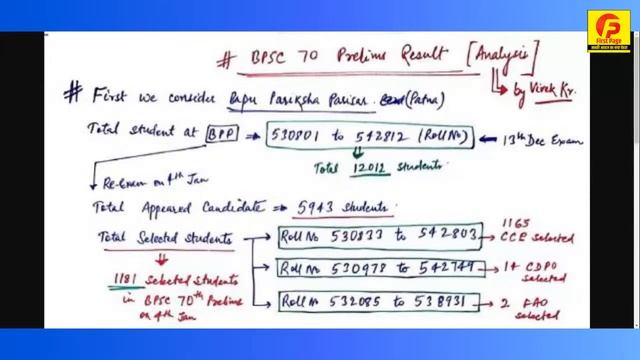 First Page
# BPSC 70 Prelims Result [Analysis]
by Vivek Kr.
# First we consider Bapu Pariksha Parisar. (Patna)
Total Student at BPP ⇒ 530801 to 542812 (Roll No) ← 13th Dec Exam
Total 12012 students.
Re-Exam on 4th Jan
Total Appeared Candidate ⇒ 5943 students.
Total Selected students
Roll No 530833 to 542803
1165
CCE selected
Roll No 530978 to 542749
14 CDPO
selected
Roll No 532085 to 538931
2 FAO
selected
1181 selected students
in BPSC 70th Prelims
on 4th Jan